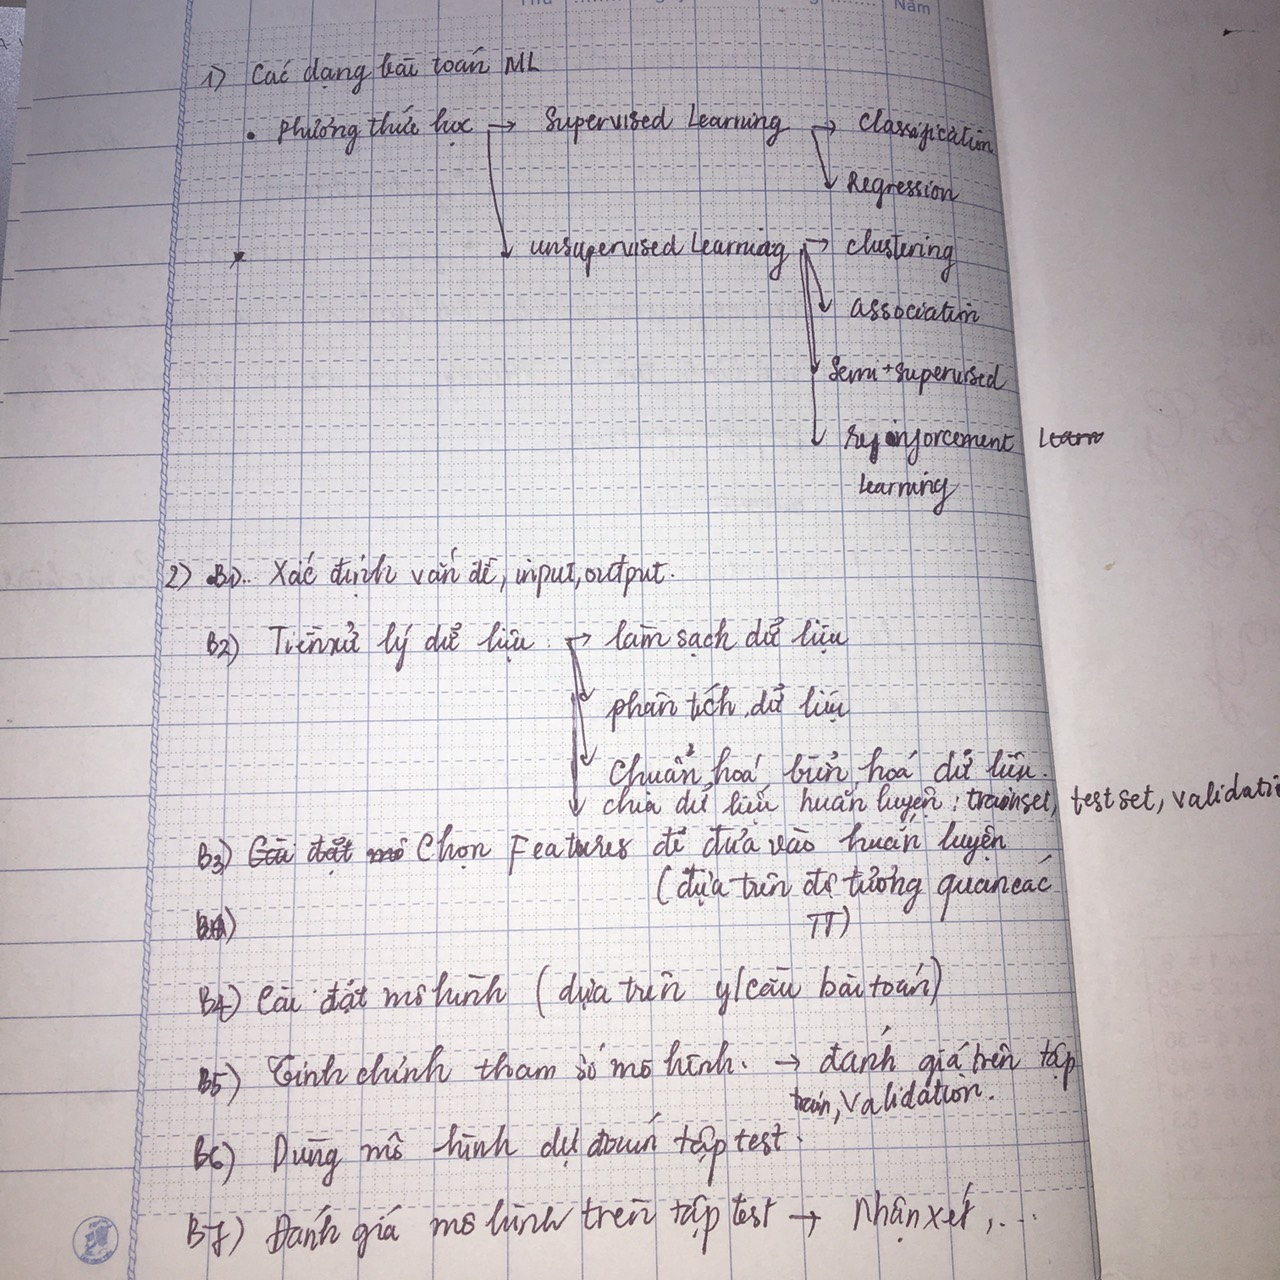 Năm
1) Các dạng bài toán ML
• Phương thức học → Supervised Learning → Classification
Regression
unsupervised Learning → clustering
association
Semi-supervised
reinforcement Learn
learning
2) B1). Xác định vấn đề, input, output.
B2) Tiền xử lý dữ liệu → làm sạch dữ liệu
phân tích dữ liệu
chuẩn hoá, biến hoá dữ liệu.
chia dữ liệu huấn luyện: train set, test set, validati
B3) Cài đặt mô Chọn Features để đưa vào huấn luyện
(dựa trên độ tương quan các
TT)
B4) Cài đặt mô hình (dựa trên y/cầu bài toán)
B5) Tinh chỉnh tham số mô hình. → đánh giá trên tập
train, validation.
B6) Dùng mô hình dự đoán tập test.
B7) Đánh giá mô hình trên tập test → Nhận xét, ...